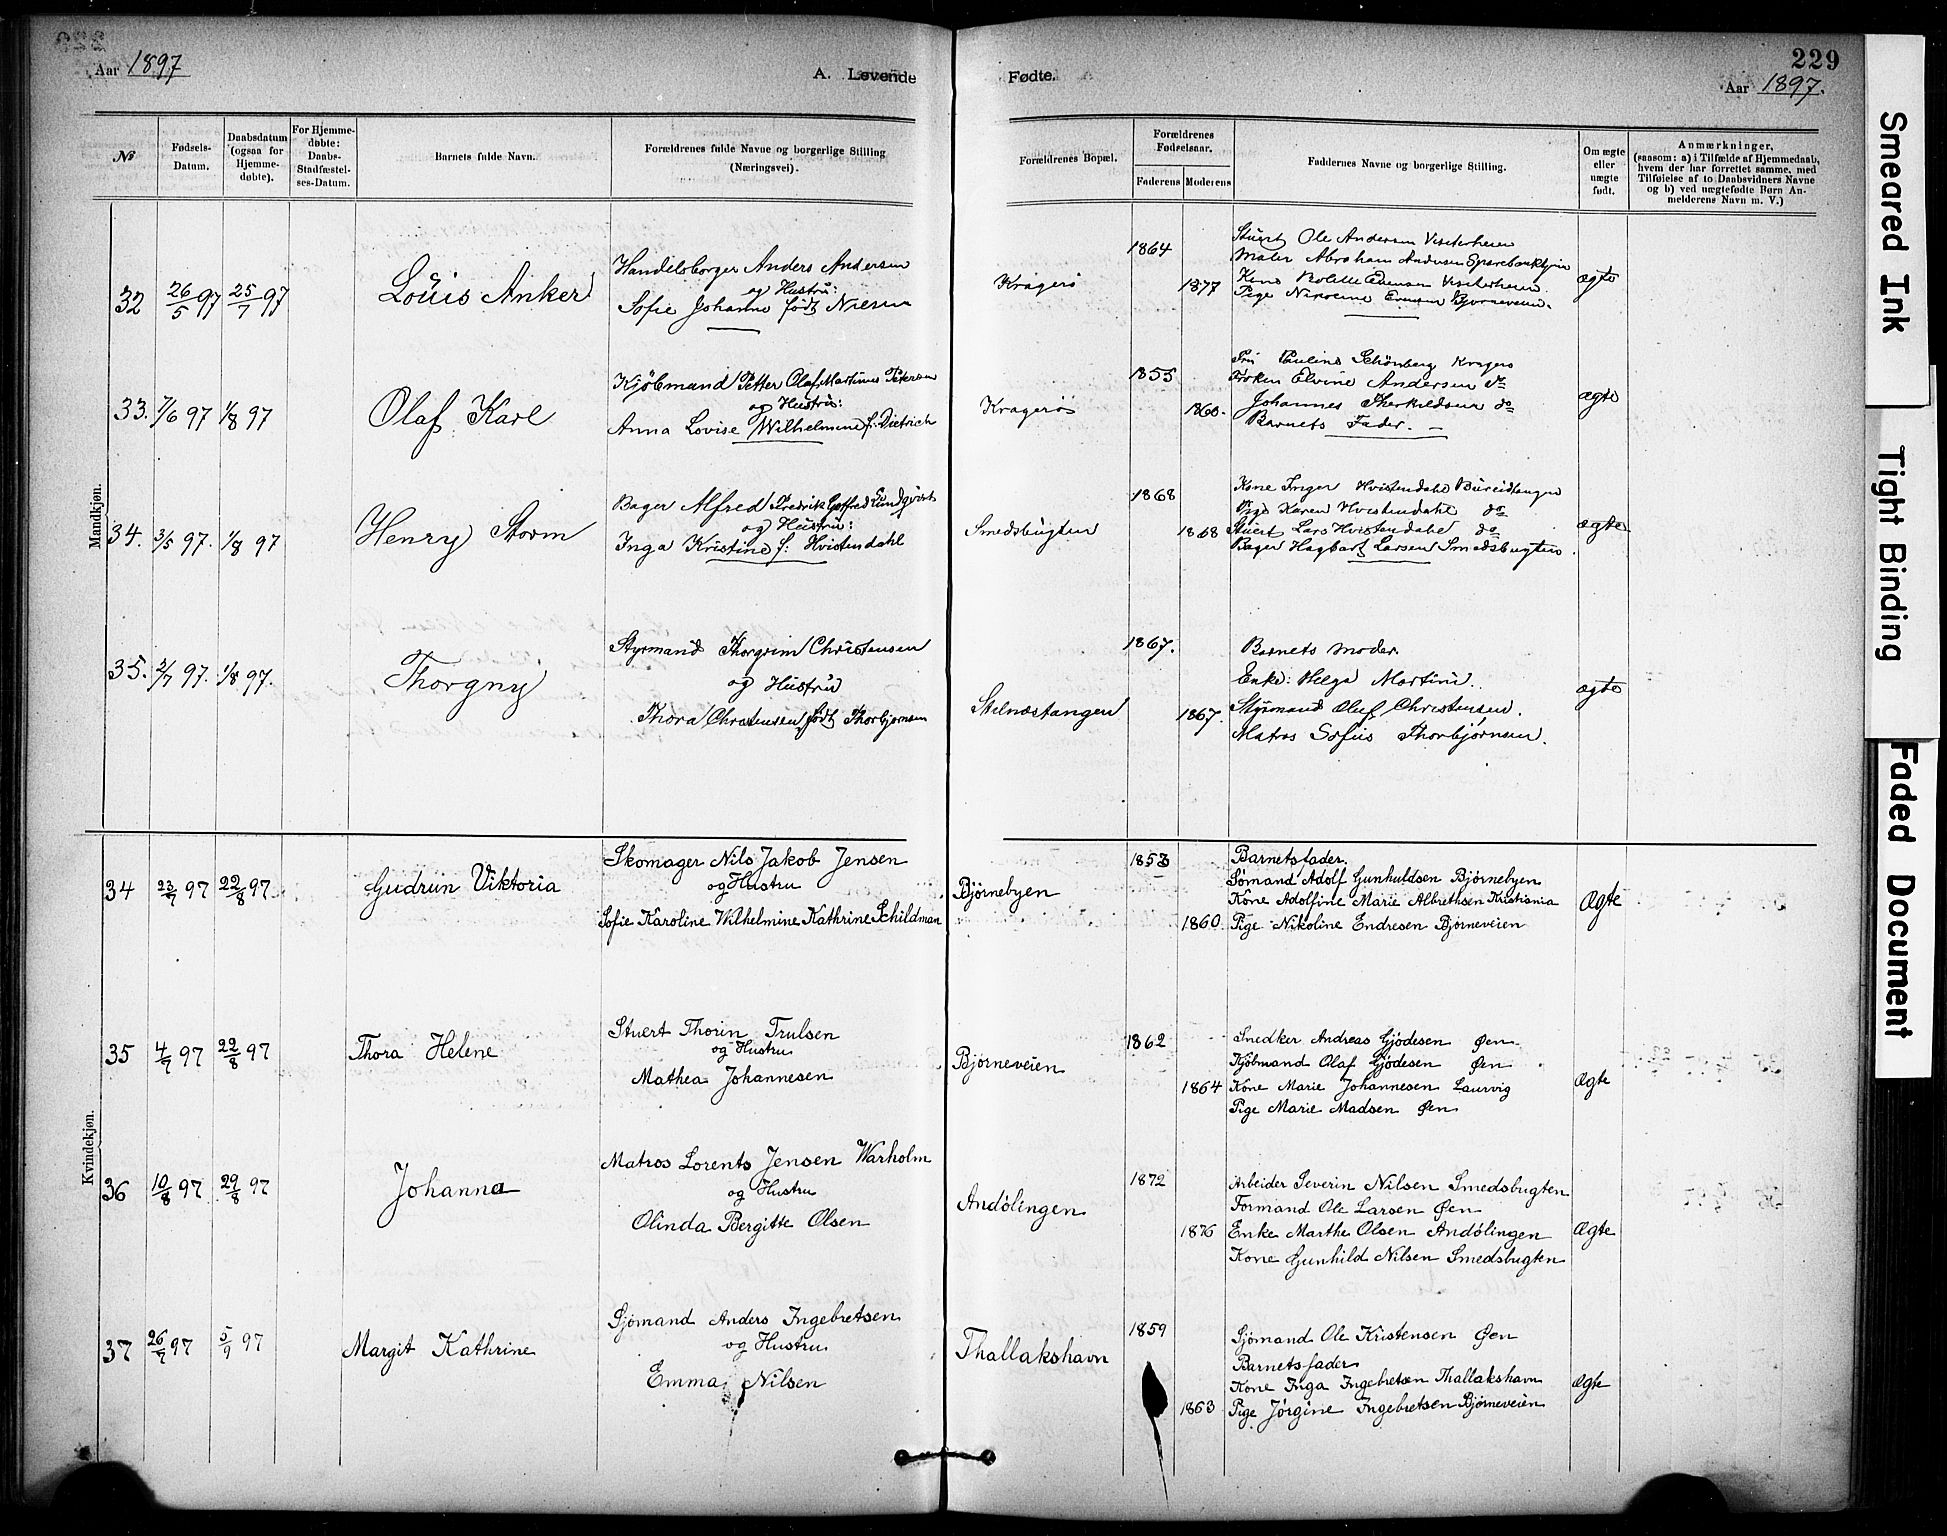 Aar 1897
A. Levende
Fødte.
229
Aar 1897.
No
Fødsels-
Datum.
Daabsdatum
(ogsaa for
Hjemme-
døbte).
For Hjemme-
døbte:
Daabs-
Stadfæstel-
ses-Datum.
Barnets fulde Navn.
Forældrenes fulde Navne og borgerlige Stilling
(Næringsvei).
Forældrenes Bopæl.
Forældrenes
Fødselsaar.
Faderens
Moderens
Faddernes Navne og borgerlige Stilling.
Om ægte
eller
uægte
født.
Anmærkninger,
(saasom: a) i Tilfælde af Hjemmedaab,
hvem der har forrettet samme, med
Tilføielse af to Daabsvidners Navne
og b) ved uægtefødte Børn An-
melderens Navn m. V.)
Mandkjøn.
32 26/5 97 25/7 97
Louis Anker
Handelsborger Anders Andersen
og Hustru:
Sofie Johanne født
Kragerø
1864
1877
Stuert Ole Andersen
Maler Abraham Andersen
Kone
Pige
ægte
33. 7/6 97 1/8 97
Olaf Karl
Kjøbmand Petter Olaf Martinus Petersen
og Hustru:
Anna Lovise Wilhelmine f: Dietrich
Kragerø
1855
1860.
Fru Pauline Schønberg Kragerø
Frøken Elvine Andersen do
Johannes Therkildsen do
Barnets Fader. —
ægte
34. 3/5 97. 1/8 97
Henry Storm
Bager Alfred Fredrik Gotfred
og Hustru:
Inga Kristine f: Hvistendahl
Smedsbugten
1868
1868
Kone Inger Hvistendahl
Pige Karen Hvistendahl do
Stuert Lars Hvistendahl do
Bager Hagbart Larsen Smedsbugten.
ægte
35. 2/7 97. 1/8 97.
Thorgny
Styrmand Thorgrim Christensen
og Hustru
Thora Christensen født Thorbjørnsen
Stilnæstangen
1867.
1867.
Barnets moder.
Enke: Helga Martini.
Styrmand Oluf Christensen.
Matros Sofus Thorbjørnsen.
ægte
Kvindekjøn.
34 23/7 97 22/8 97
Gudrun Viktoria
Skomager Nils Jakob Jensen
og Hustru
Sofie Karoline Wilhelmine Kathrine Schildman
Bjørnebyen
1853
1860
Barnets fader.
Sømand Adolf Gunhuldsen Bjørnebyen
Kone Adolfine Marie Albrethsen Kristiania
Pige Nikoline Endresen Bjørneveien
Ægte
35 4/7 97 22/8 97
Thora Helene
Stuert Thorin Trulsen
og Hustru
Mathea Johannesen
Bjørneveien
1862
1864
Snedker Andreas Gjødesen Øen
Kjøbmand Olaf Gjødesen Øen
Kone Marie Johannesen Laurvig
Pige Marie Madsen Øen
Ægte
36 10/8 97 29/8 97
Johanna
Matros Lorents Jensen Warholm
og Hustru
Olinda Bergitte Olsen
Andølingen
1872
1876
Arbeider Severin Nilsen Smedsbugten
Formand Ole Larsen Øen
Enke Marthe Olsen Andølingen
Kone Gunhild Nilsen Smedsbugten
Ægte
37 26/7 97 5/9 97
Margit Kathrine
Sjømand Anders Ingebretsen
og Hustru
Emma Nilsen
Thallakshavn
1859
1863
Sjømand Ole Kristensen Øen
Barnets fader
Kone Inga Ingebretsen Thallakshavn
Pige Jørgine Ingebretsen Bjørneveien
Ægte
Smeared Ink
Tight Binding
Faded Document